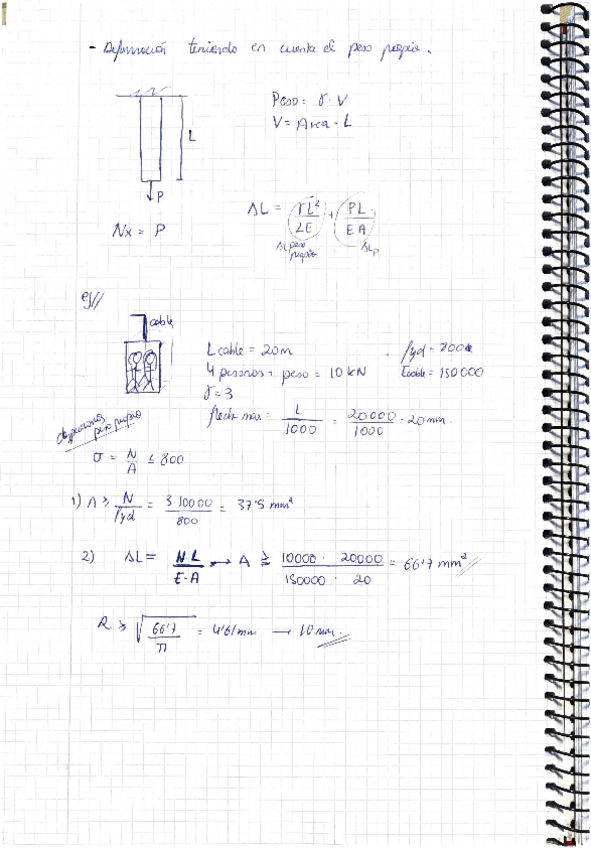 - Deformación teniendo en cuenta el peso propio.
Peso = γ · V
V = Area · L
L
P
Nx = P
ΔL = γL²/2E + PL/EA
ΔL peso propio ΔLp
ej//
cable
L cable = 20m
fyd = 800
4 personas + peso = 10 kN
Ecable = 150000
γ = 3
flecha max = L/1000 = 20000/1000 = 20mm.
peso propio
σ = N/A ≤ 800
1) A ≥ N/fyd = 3·10000/800 = 37'5 mm²
2) ΔL = N·L/E·A → A ≥ 10000 · 20000/150000 · 20 = 66'7 mm²
R ≥ √66'7/π = 4'61mm → 10mm.